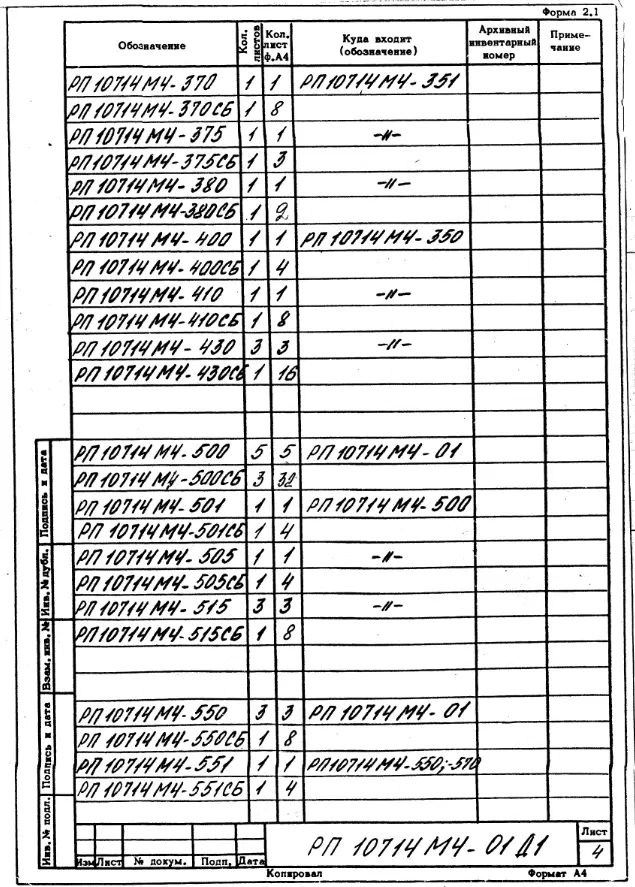 Форма 2.1
Обозначение Кол. листов Кол. лист ф.А4 Куда входит (обозначение) Архивный инвентарный номер Примечание
РП 10714 М4-370 1 1 РП 10714 М4-351
РП 10714 М4-370СБ 1 8
РП 10714 М4-375 1 1 -"-
РП 10714 М4-375СБ 1 3
РП 10714 М4-380 1 1 -"-
РП 10714 М4-380СБ 1 2
РП 10714 М4-400 1 1 РП 10714 М4-350
РП 10714 М4-400СБ 1 4
РП 10714 М4-410 1 1 -"-
РП 10714 М4-410СБ 1 8
РП 10714 М4-430 3 3 -"-
РП 10714 М4-430СБ 1 16
РП 10714 М4-500 5 5 РП 10714 М4-01
РП 10714 М4-500СБ 3 32
РП 10714 М4-501 1 1 РП 10714 М4-500
РП 10714 М4-501СБ 1 4
РП 10714 М4-505 1 1 -"-
РП 10714 М4-505СБ 1 4
РП 10714 М4-515 3 3 -"-
РП 10714 М4-515СБ 1 8
РП 10714 М4-550 3 3 РП 10714 М4-01
РП 10714 М4-550СБ 1 8
РП 10714 М4-551 1 1 РП10714М4-550;-570
РП 10714 М4-551СБ 1 4
Подпись и дата
Инв. № дубл.
Взам. инв. №
Подпись и дата
Инв. № подл.
Изм Лист № докум. Подп. Дата
РП 10714 М4-01 Д1
Лист
4
Копировал Формат А4